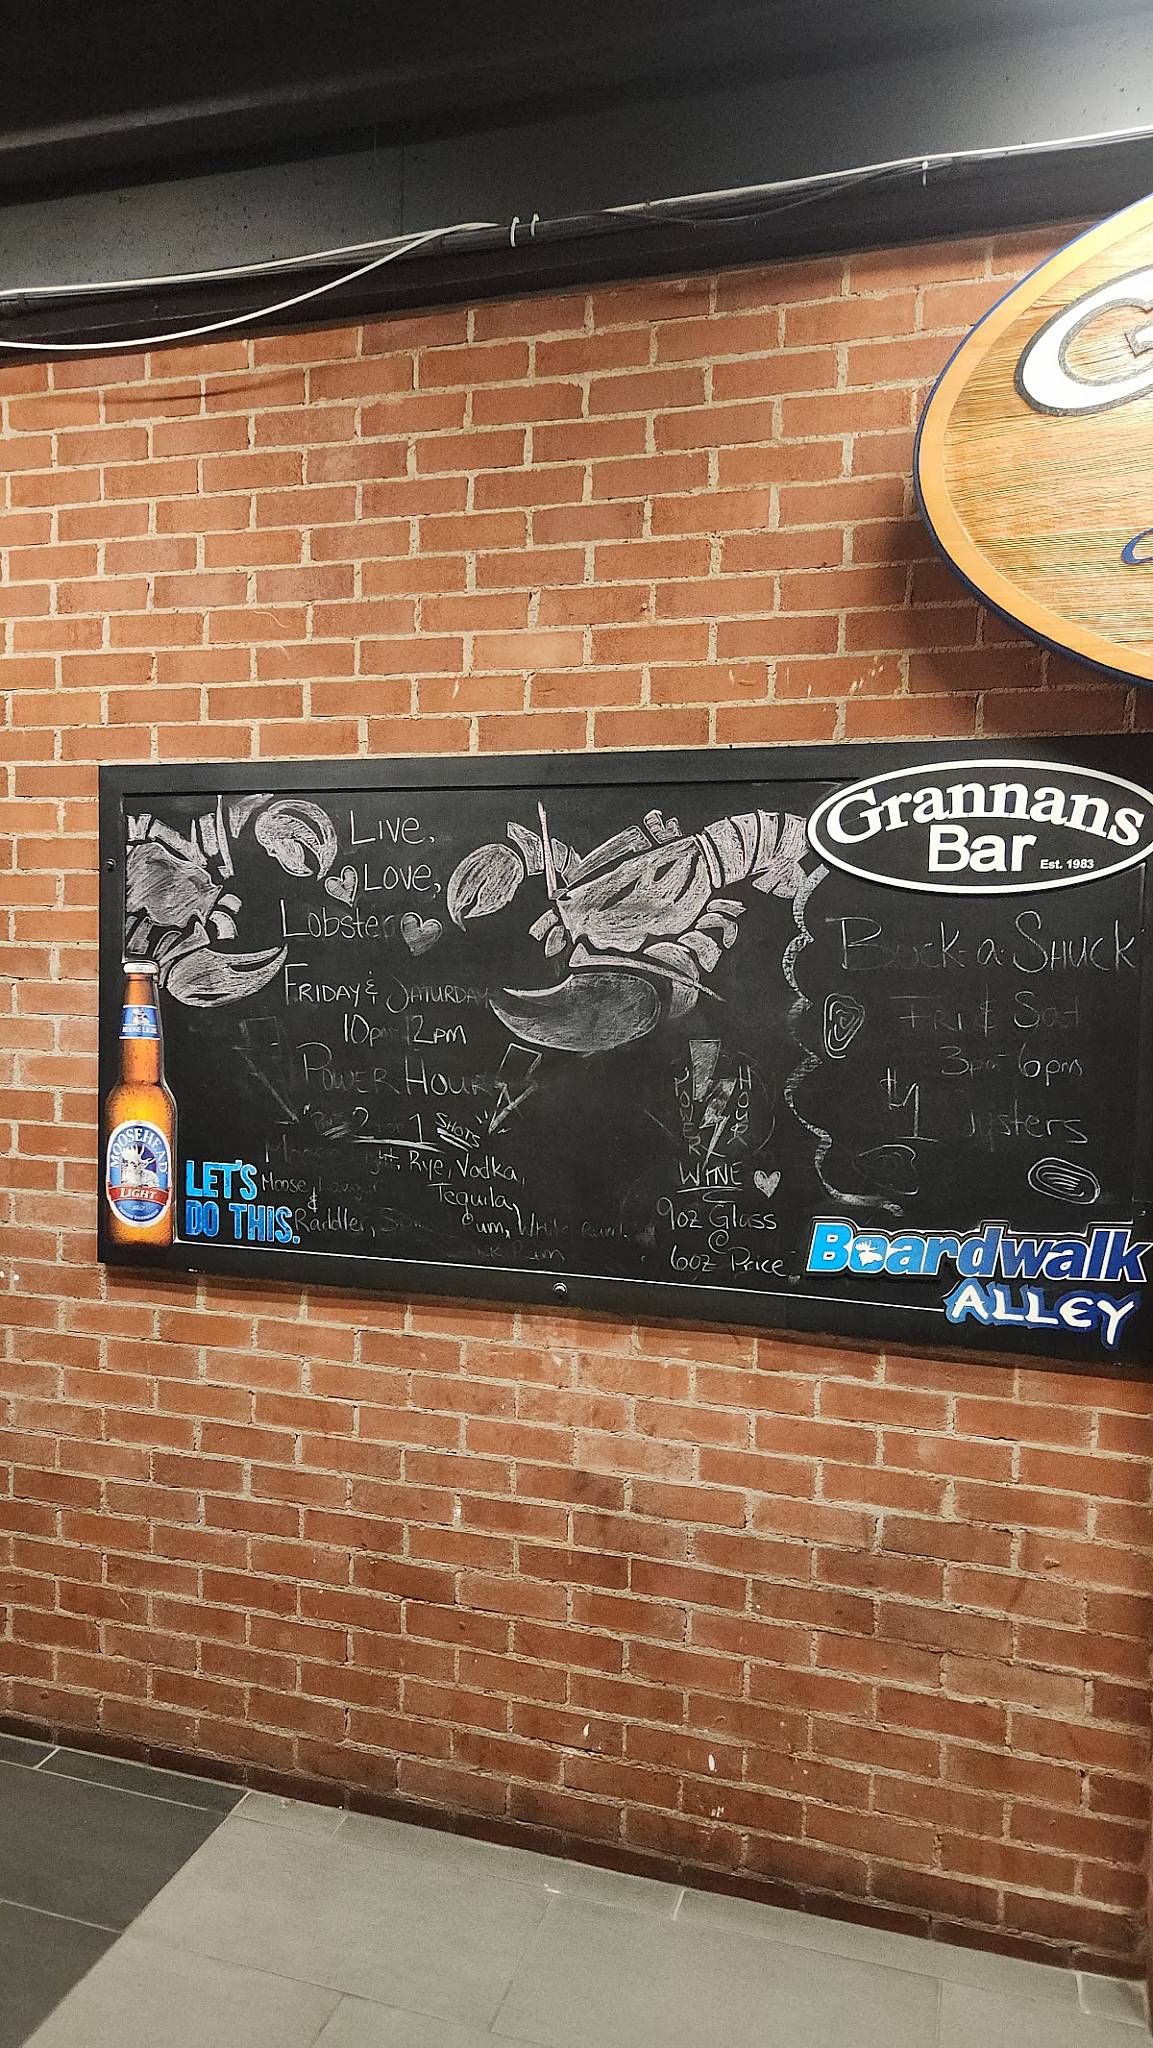 Grannans
Bar
Est. 1983
Live,
Love,
Lobster
Friday & Saturday
10pm-12pm
Power Hour
2 for 1 Shots
Moose Light, Rye, Vodka,
Tequila,
& Raddler,
Rum, White Rum,
MOOSE LIGHT
MOOSEHEAD
LIGHT
LET'S
DO THIS.
POWER
HOUR
WINE
9oz Glass
@
6oz Price
Buck-a-Shuck
Fri & Sat
3pm-6pm
$1 Oysters
Boardwalk
ALLEY